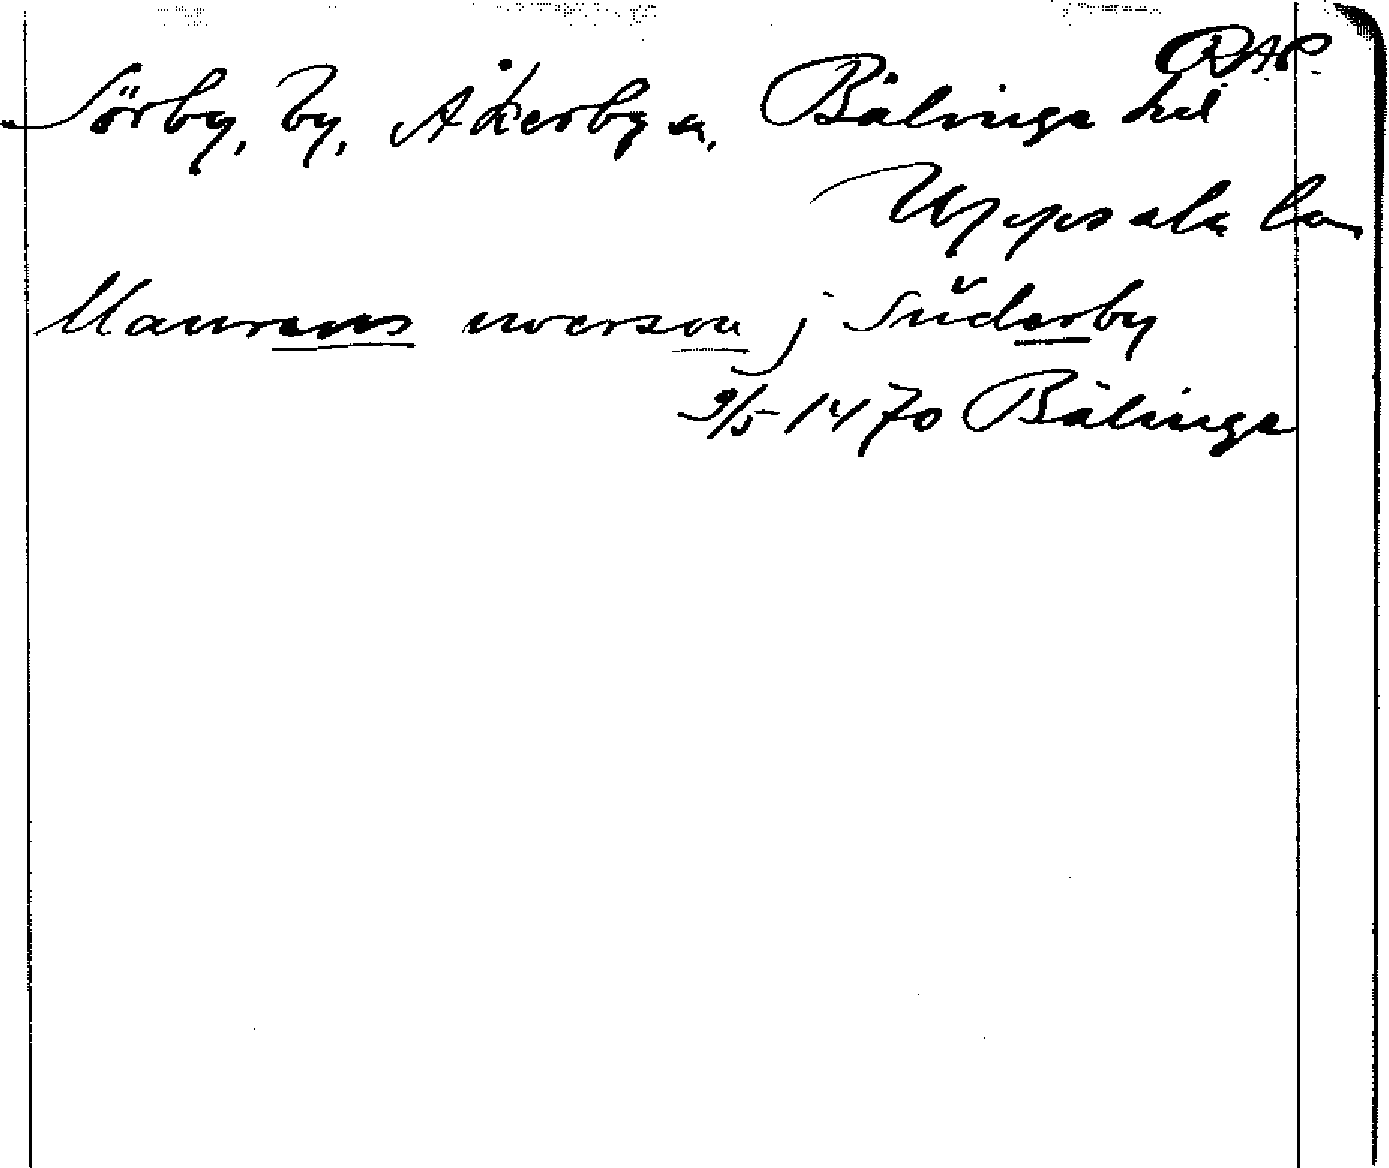 RAP
Sörby, by, Åkerby sn, Bälinge hd
Uppsala län
Laurens iwerson j Süderby
9/5 1470 Bälinge